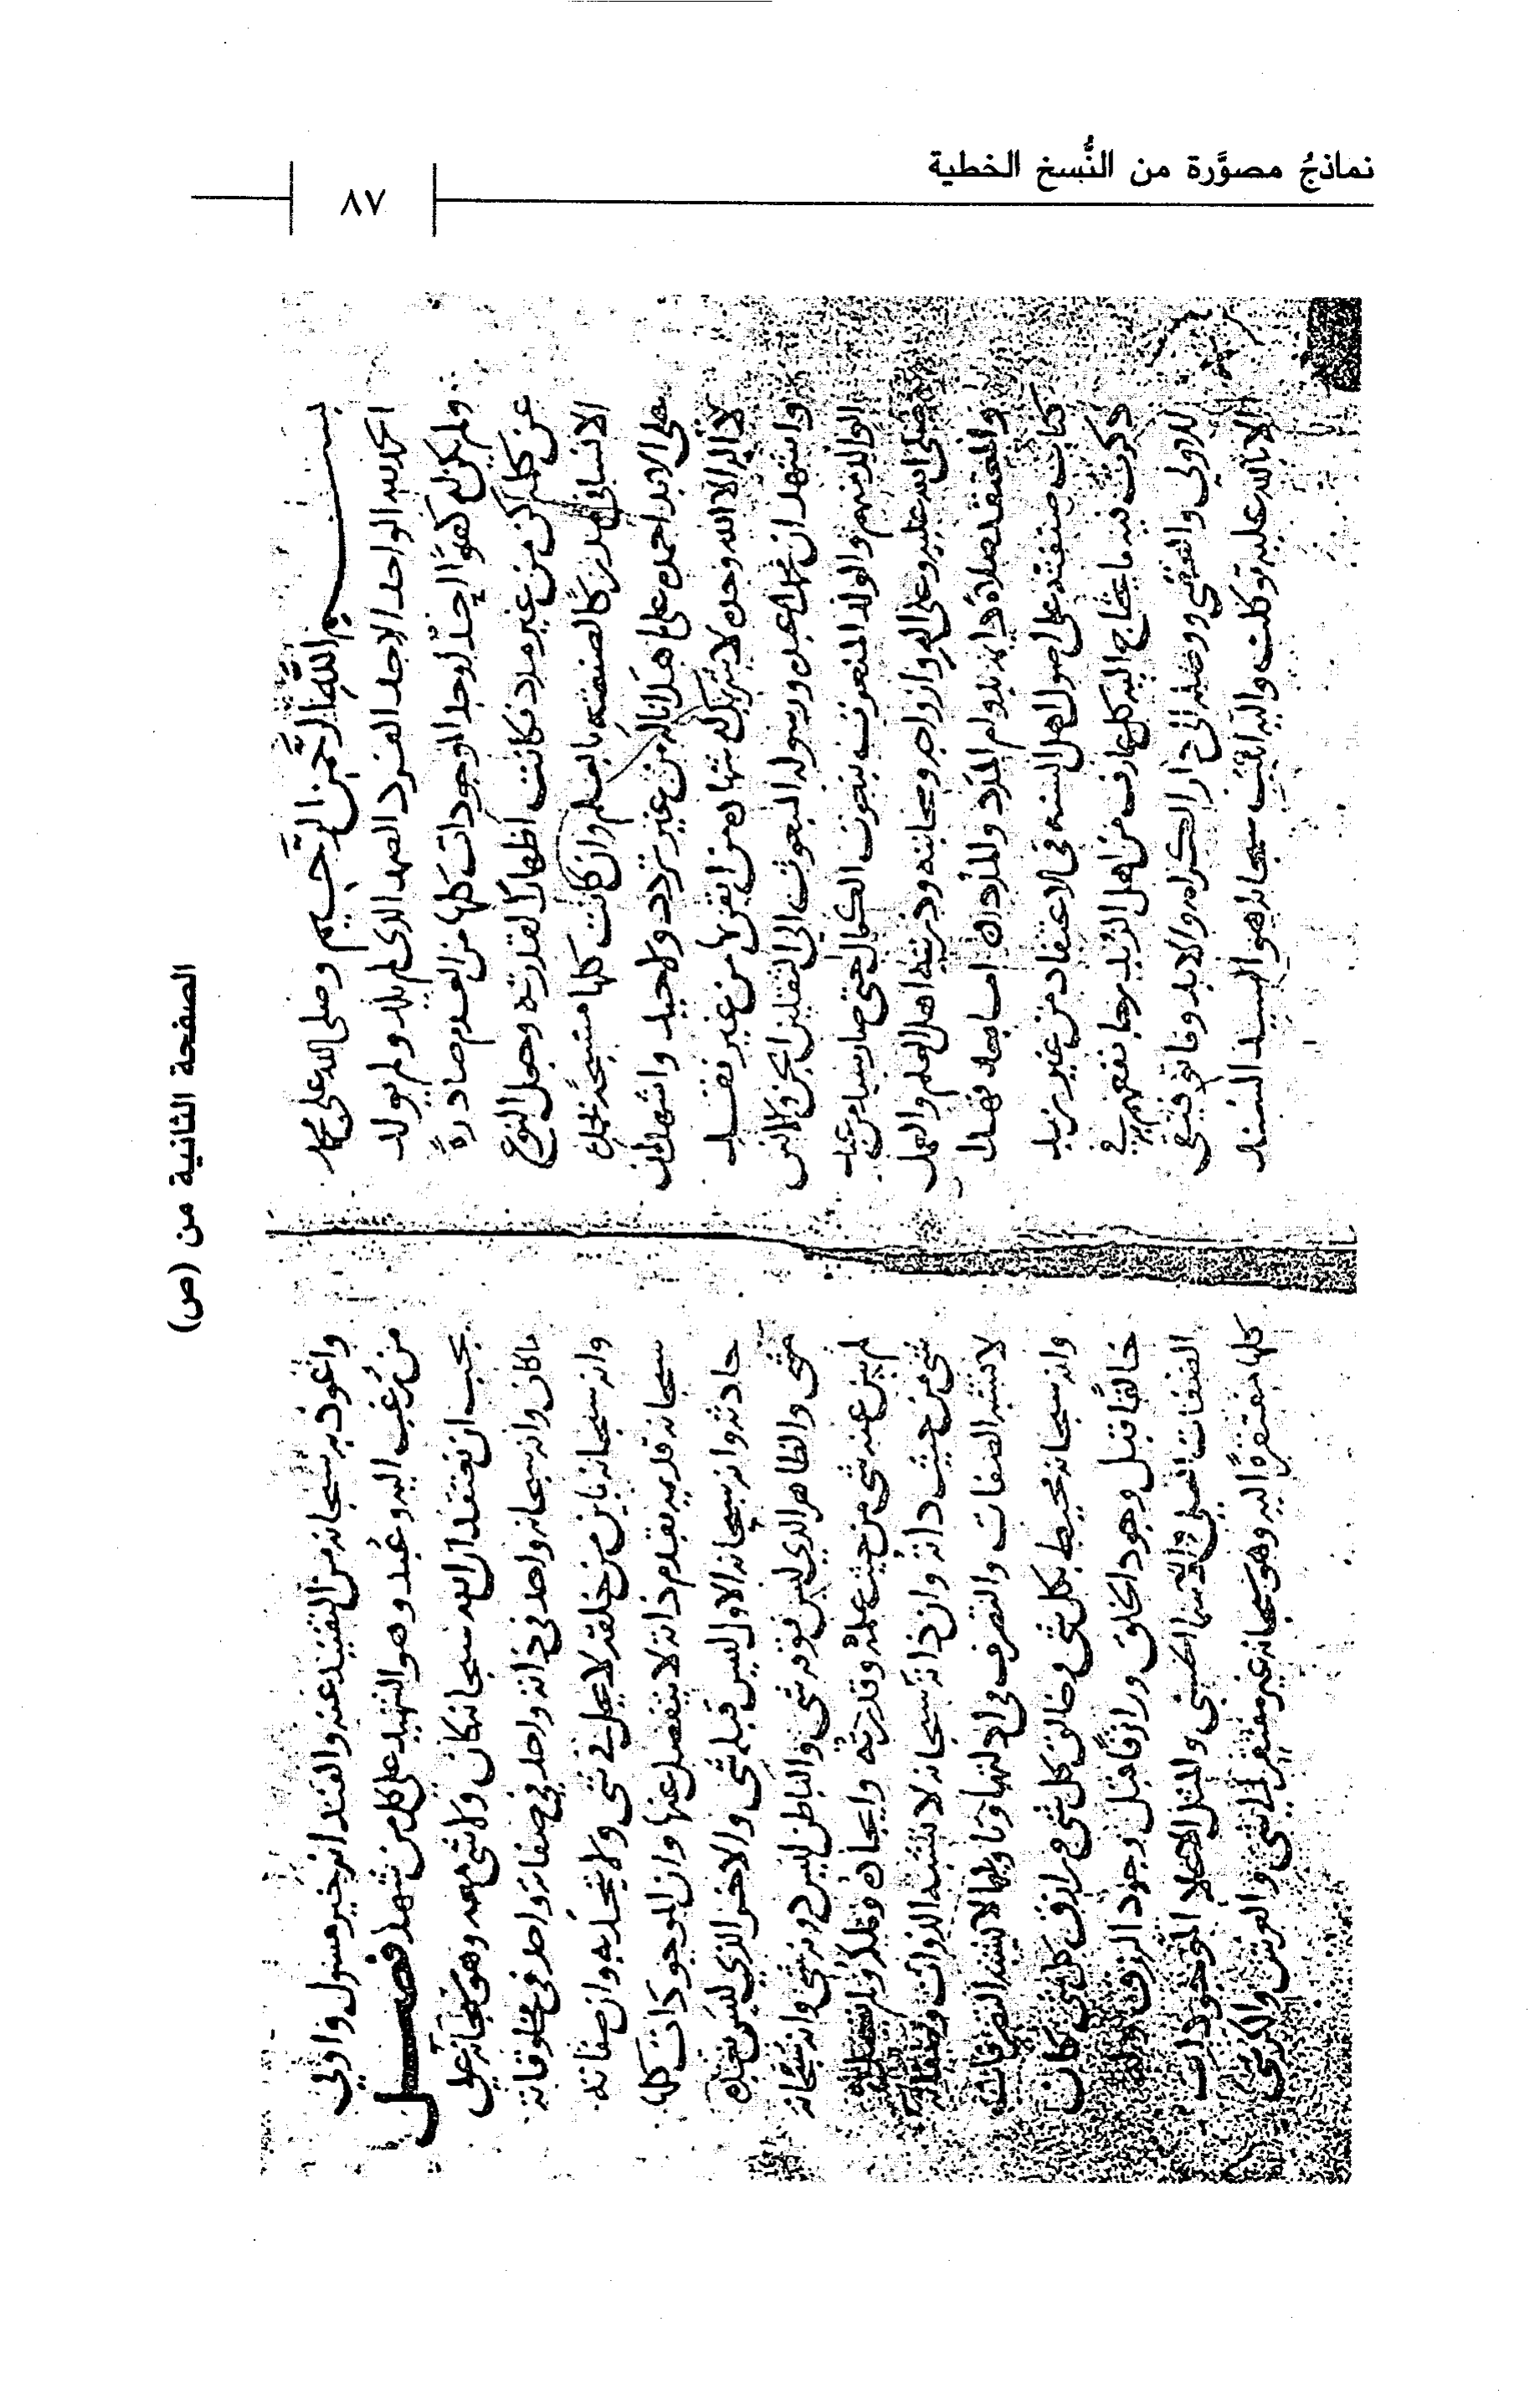 نماذجُ مصوَّرة من النُّسخ الخطية
٨٧
بسم الله الرحمن الرحيم وصلى الله على محمد
الحمد لله الواحد الاحد الفرد الصمد الذى لم يلد ولم يولد
ولم يكن له كفوًا احدٌ اوجد الموجودات كلها من العدم صادرةً
عن كلمة كن من غير مدد فكانت اظهارًا لقدرته وجعل النوع
الانسانى مدركًا لصنعته بالعلم وان كانت كلها مسبحة بحمده
على الابد احمده على ما هدانا له من غير تردد ولا حيد واشهد ان
لا اله الا الله وحده لا شريك له شهادة من ايقن بها من غير تفنيد
واشهد ان محمدا عبده ورسوله المبعوث الى الثقلين الجن والانس
الوالد منهم والولد المنعوت بنعوت الكمال حتى صار سيد من عبد
صلى الله عليه وعلى اله وازواجه وصحابته وذريته اهل العلم والعمل
والمعتقد صلاةً دايمة بدوام المَدَد والمُدد اما بعد فهذا
كتاب صنفته على اصول اهل السنه فى الاعتقاد من غير مزيد
ذكرت فيه ما يحتاج اليه كل عارف من اهل الزُبَد رجا نفعهم به في
الاولى والعقبى ووصله الى دار الكرامه والابد وما توفيقى
الا بالله عليه توكلت واليه انيب سبحانه هو السيد السند
واعوذ به سبحانه من التقييد عنه والفند انه خير مسئول واولى
من رُغب اليه وعُبد وهو الشهيد على كل من شهد فصل
يجب ان تعتقد ان الله سبحانه كان ولا شى معه وهو سبحانه على
ما كان وانه سبحانه واحد فى ذاته واحد فى صفاته واحد فى مخلوقاته
وانه سبحانه باين من خلقه لا يحل فى شى ولا يتحد به وان صفاته
سبحانه قديمه بقدم ذاته لا تنفصل عنها وان الموجودات كلها
حادثه وانه سبحانه الاول ليس قبله شى والاخر الذي ليس بعده
شى والظاهر الذي ليس فوقه شى والباطن ليس دونه شى وانه سبحانه
لم يبن عنه شى من حيث علمه وقدرته وايجاده
شى من حيث ذاته وان ذاته سبحانه لا تشبه الذوات وصفاته
لا تشبه الصفات والتصرف فى
وانه سبحانه محيط بكل شى وخالق كل شى ورازق كل شى كان
خالقًا قبل وجود الخلق ورازقًا قبل وجود الرزق وله
الصفات العلى والاسما الحسنى والمثل الاعلا الموجودات
كلها مفتقرةً اليه وهو سبحانه غير مفتقر الى شى والعرش والكرسى
الصفحة الثانية من (ص)